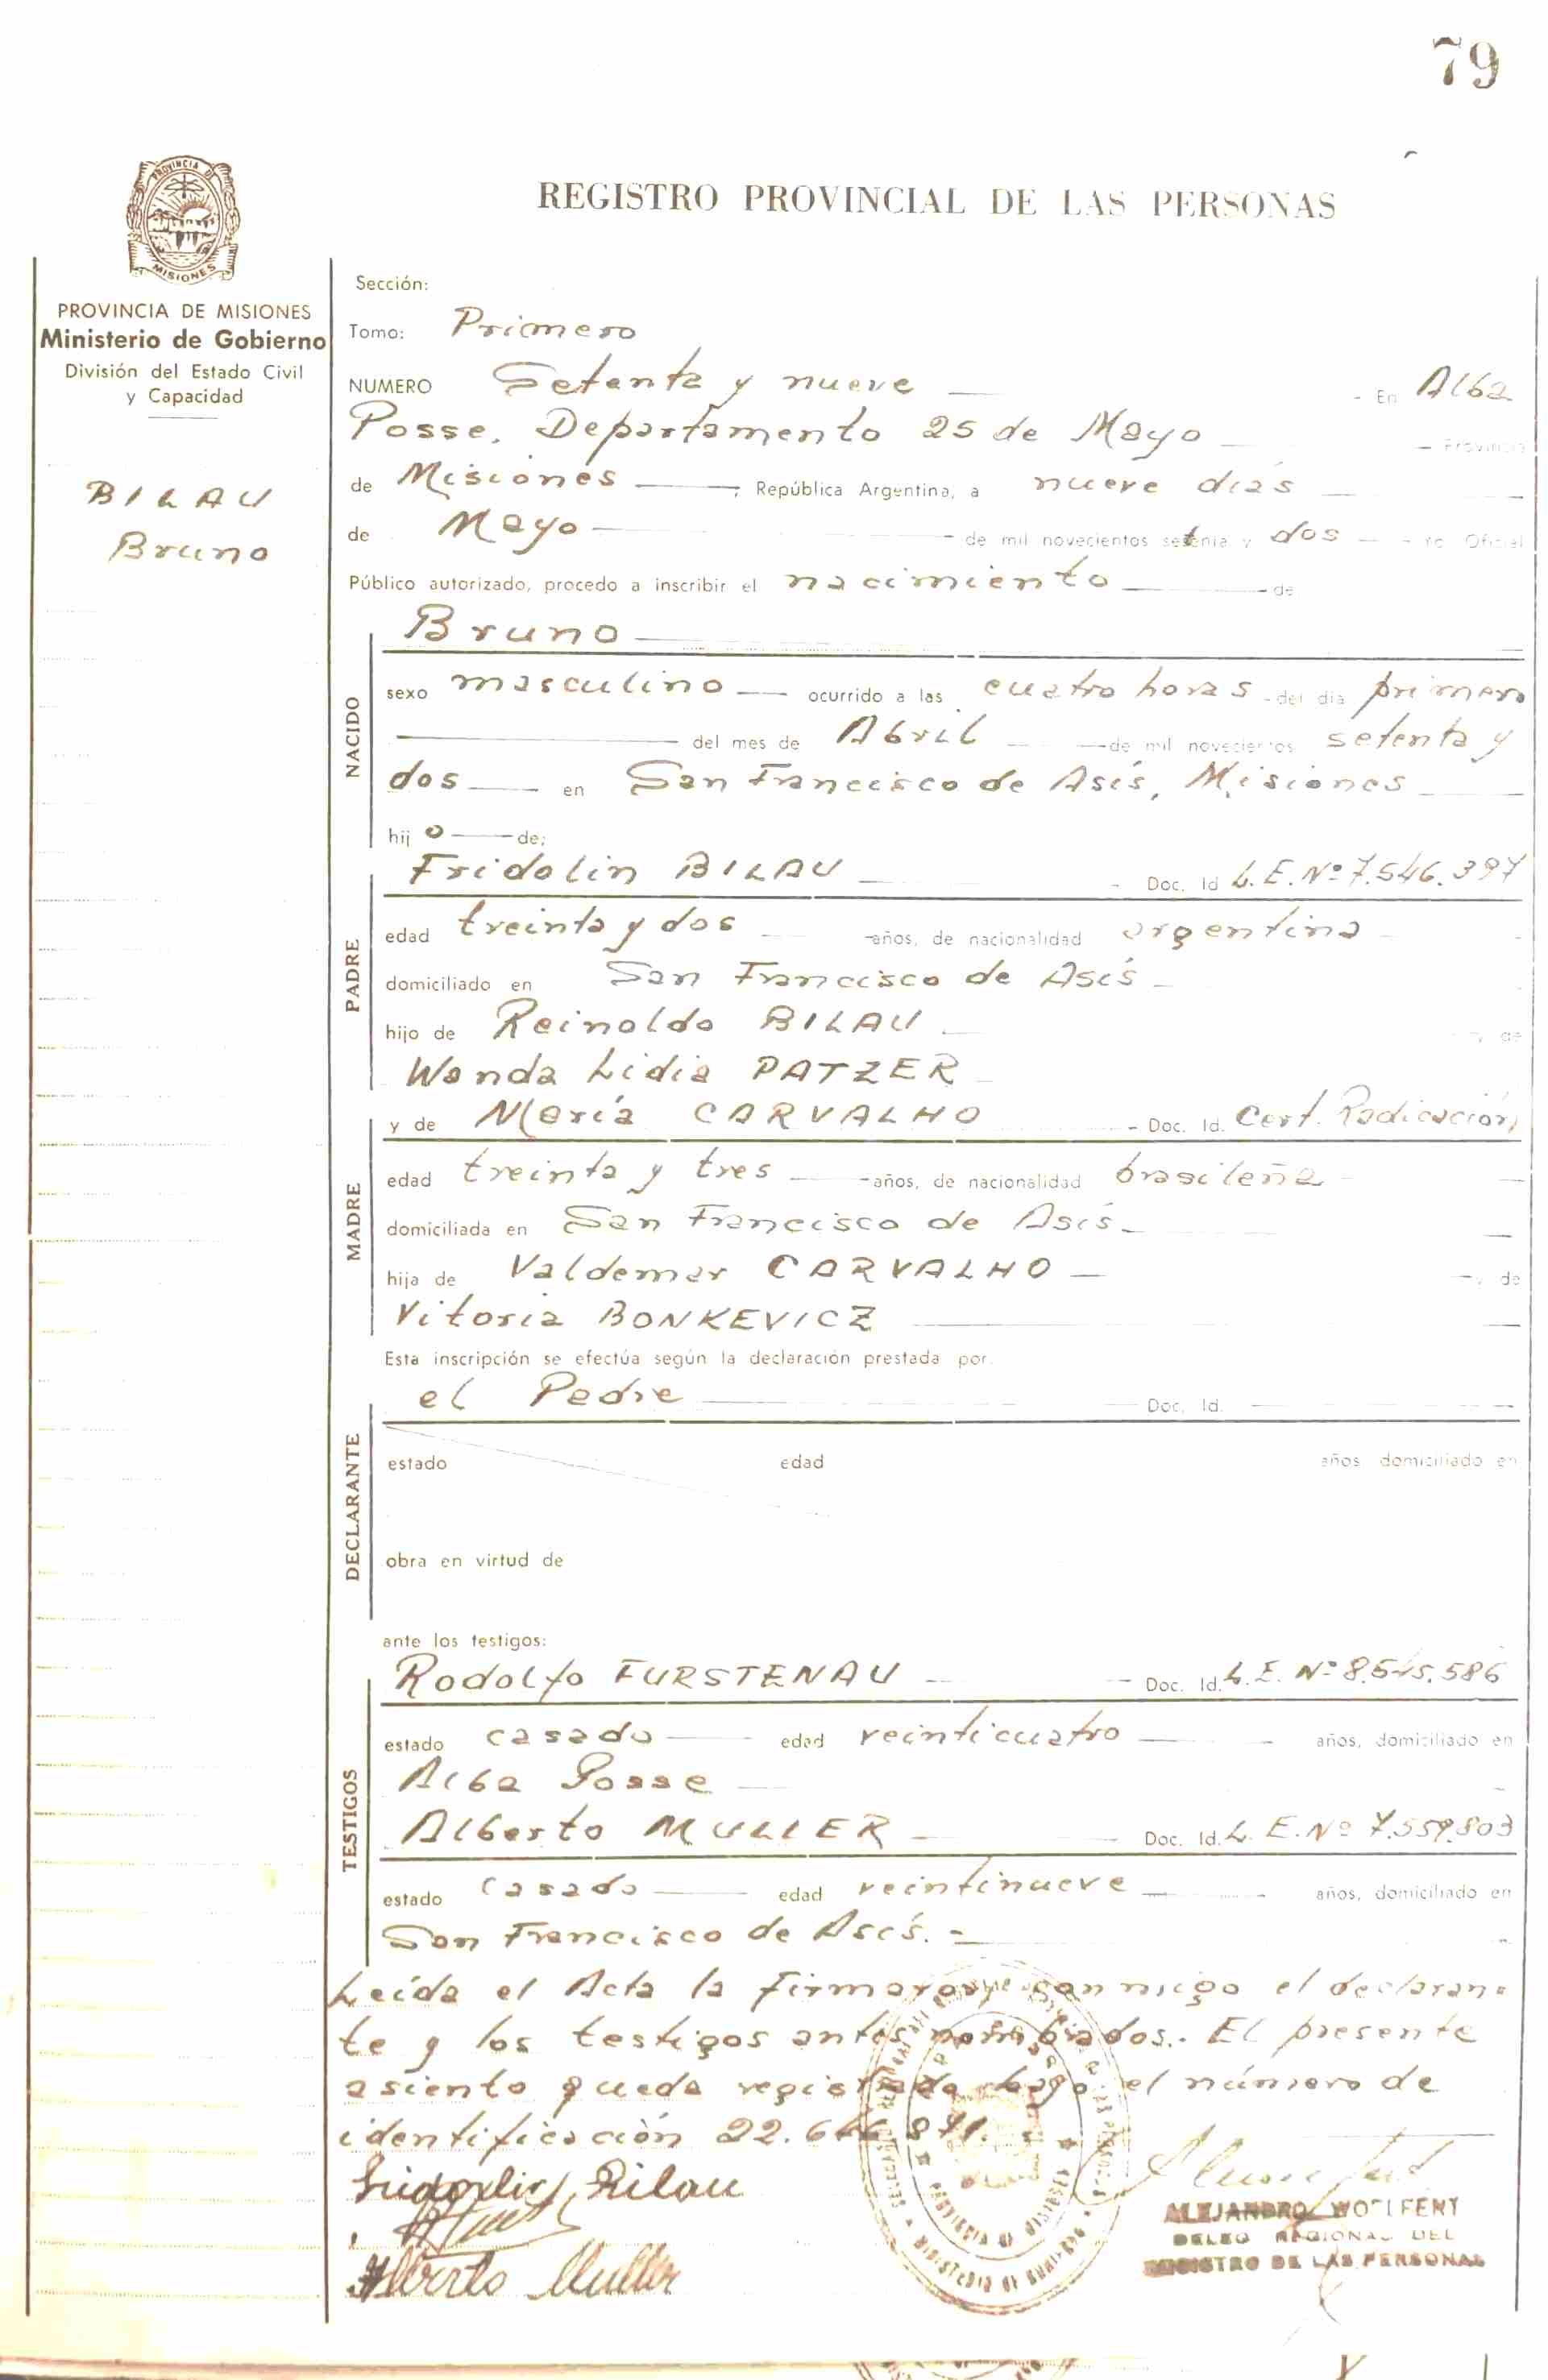 79
REGISTRO PROVINCIAL DE LAS PERSONAS
PROVINCIA DE
MISIONES
PROVINCIA DE MISIONES
Ministerio de Gobierno
División del Estado Civil
y Capacidad
BILAU
Bruno
Sección:
Tomo: Primero
NUMERO Setenta y nueve - En Alba
Posse, Departamento 25 de Mayo - Provincia
de Misiones, República Argentina, a nueve días
de Mayo de mil novecientos setenta y dos yo Oficial
Público autorizado, procedo a inscribir el nacimiento de
Bruno
NACIDO
sexo masculino ocurrido a las cuatro horas del día primero
del mes de Abril de mil novecientos setenta y
dos en San Francisco de Asís, Misiones
hij o de:
Fridolin BILAU Doc. Id L.E. Nº 7.546.397
PADRE
edad treinta y dos años, de nacionalidad argentina
domiciliado en San Francisco de Asís
hijo de Reinoldo BILAU y de
Wanda Lidia PATZER
y de María CARVALHO Doc. Id. Cert. Radicación
MADRE
edad treinta y tres años, de nacionalidad brasileña
domiciliada en San Francisco de Asís
hija de Valdemar CARVALHO y de
Vitoria BONKEVICZ
Esta inscripción se efectúa según la declaración prestada por:
el Padre Doc. Id.
DECLARANTE
estado edad años domiciliado en
obra en virtud de
ante los testigos:
Rodolfo FURSTENAU Doc. Id. L.E. Nº 8.545.586
TESTIGOS
estado casado edad veinticuatro años, domiciliado en
Alba Posse
Alberto MULLER Doc. Id. L.E. Nº 7.559.803
estado casado edad veintinueve años, domiciliado en
San Francisco de Asís.-
Leída el Acta la firmaron conmigo el declaran-
te y los testigos antes nombrados.- El presente
asiento queda registrado bajo el número de
identificación 22.
Fridolin Bilau
Alberto Muller
ALEJANDRO WOLFERT
DELEG REGIONAL DEL
REGISTRO DE LAS PERSONAS
PROVINCIA DE MISIONES
MINISTERIO DE GOBIERNO